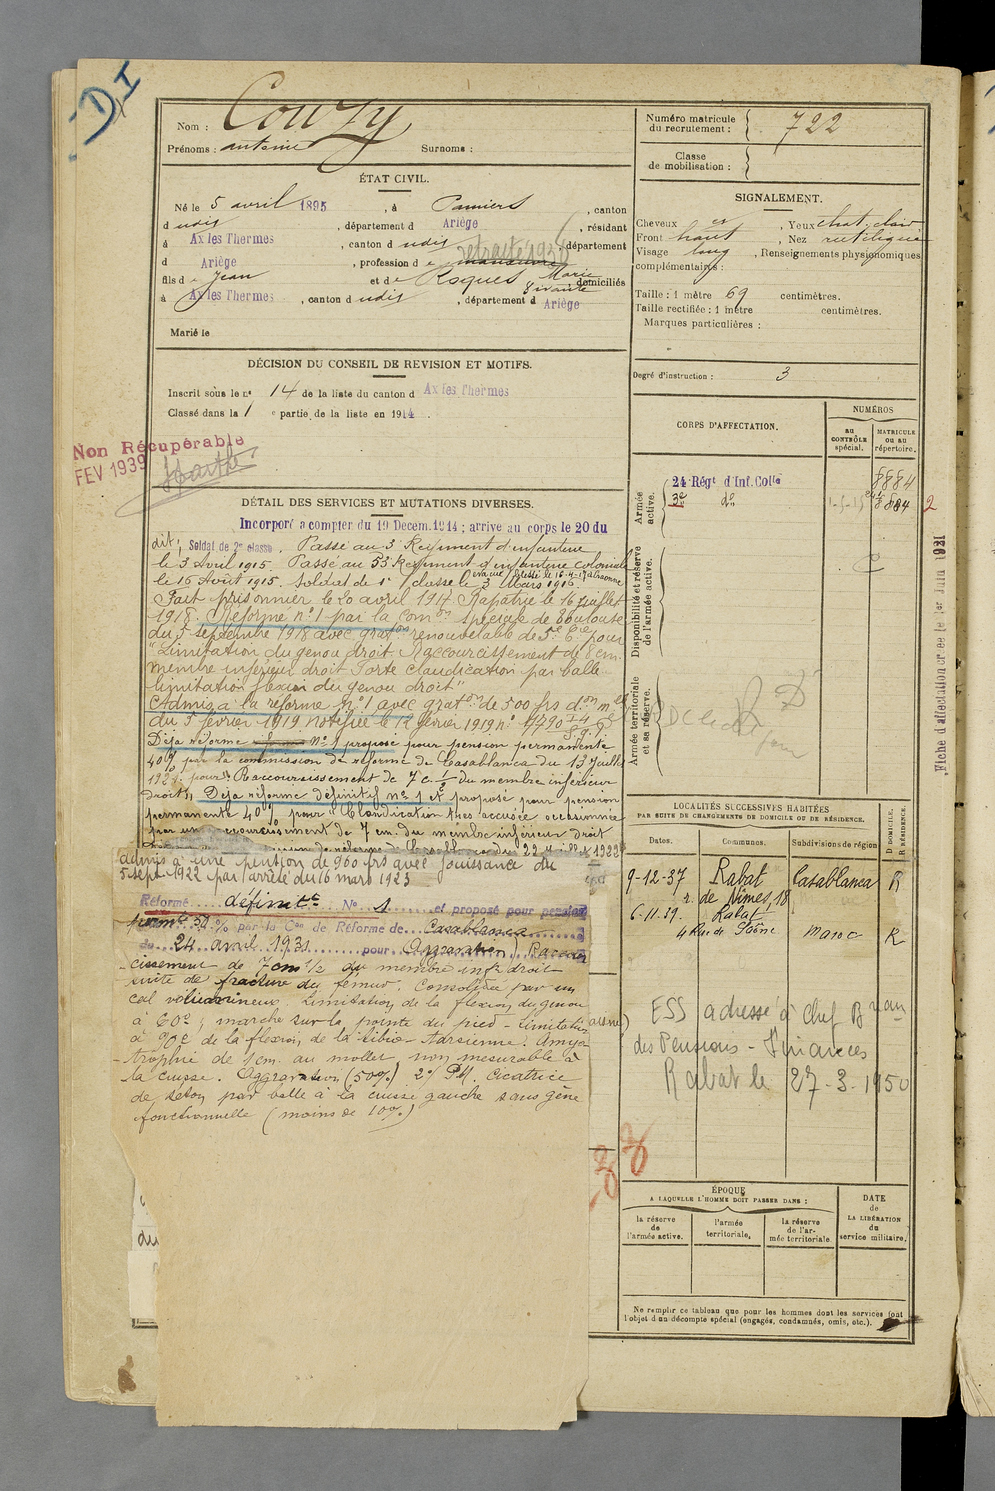 DI
Nom : Couzy
Prénoms : antoine Surnoms :
Numéro matricule du recrutement : 722
Classe de mobilisation :
ÉTAT CIVIL.
Né le 5 avril 1895, à Pamiers, canton
d udit, département d Ariège, résidant
à Ax les Thermes, canton d udit, département
d Ariège, profession d e manœuvre retraité
fils d e Jean et d e Roques Marie domiciliés
à Ax les Thermes, canton d udit, département d Ariège
Marié le
SIGNALEMENT.
Cheveux , Yeux chat. clair
Front haut, Nez rectiligne
Visage long, Renseignements physionomiques
complémentaires :
Taille : 1 mètre 69 centimètres.
Taille rectifiée : 1 mètre centimètres.
Marques particulières :
Degré d'instruction : 3
DÉCISION DU CONSEIL DE REVISION ET MOTIFS.
Inscrit sous le n° 14 de la liste du canton d Ax les Thermes
Classé dans la 1 e partie de la liste en 1914.
Non Récupérable
FEV 1939
DÉTAIL DES SERVICES ET MUTATIONS DIVERSES.
Incorporé a compter du 19 Decem. 1914 ; arrive au corps le 20 du
dit; Soldat de 2e classe. Passé au 3 Regiment d'infanterie
le 3 Avril 1915. Passé au 53 Regiment d'infanterie Coloniale
le 16 Août 1915. Soldat de 1e classe le 3 Mars 1916
évacué blessé le 16-4-17
Fait prisonnier le 20 avril 1917. Rapatrié le 16 juillet
1918. Réformé n° 1 par la Comon spéciale de Toulouse
du 5 septembre 1918 avec graton renouvelable de 5e Cie pour
"Limitation du genou droit Raccourcissement de 8 cm.
membre inférieur droit Forte claudication par balle
limitation flexion du genou droit"
Admis à la réforme n° 1 avec graton de 500 frs don mle
du 5 février 1919 notifiée le 12 février 1919 n°
Déja réformé n° 1 proposé pour pension permanente
40% par la commission de réforme de Casablanca du 13 juillet
pour: Raccourcissement de 7 c. ½ du membre inférieur
droit. Déja réformé définitif n° 1 et proposé pour pension
permanente 40% pour "Claudication très accusée occasionnée
par un raccourcissement de 7 cm. du membre inférieur droit
admis à une pension de 960 frs avec jouissance du
5 sept 1922 par arrêté du 16 mars 1923
Réformé définitt No 1 et proposé pour pension
permte 50% par la Con de Réforme de Casablanca
du 24 avril 1931 pour Aggravation) Raccour
cissement de 7cm ½ du membre infr droit
suite de fracture du fémur. Consolidée par un
cal volumineux. Limitation de la flexion du genou
à 60°; marche sur la pointe du pied - limitation
à 90° de la flexion de la tibio-tarsienne. Amyo
trophie de 1 cm. au mollet non mesurable à
la cuisse. Aggravation (50%) 2°/ P.M. Cicatrice
de séton par balle à la cuisse gauche sans gêne
fonctionnelle (moins de 10%)
CORPS D'AFFECTATION.
NUMÉROS
au CONTRÔLE spécial.
MATRICULE ou au répertoire.
Armée active.
24 Régt d'Inf. Colle 8884
3e do 8884
2
Disponibilité et réserve de l'armée active.
Armée territoriale et sa réserve.
Fiche d'affectation créée le 1er Juin 1921
LOCALITÉS SUCCESSIVES HABITÉES
PAR SUITE DE CHANGEMENTS DE DOMICILE OU DE RÉSIDENCE.
Dates. Communes. Subdivisions de région D DOMICILE. R RÉSIDENCE.
9-12-37 Rabat Casablanca R
r. de Nîmes, 18
6.11.39. Rabat
4 Rue de Saône Maroc R
ESS adressé à Chef Bureau
des Pensions - Finances
Rabat le 27-3-1950
ÉPOQUE
A LAQUELLE L'HOMME DOIT PASSER DANS :
la réserve de l'armée active.
l'armée territoriale.
la réserve de l'armée territoriale
DATE de LA LIBÉRATION du service militaire.
Ne remplir ce tableau que pour les hommes dont les services font
l'objet d'un décompte spécial (engagés, condamnés, omis, etc.).